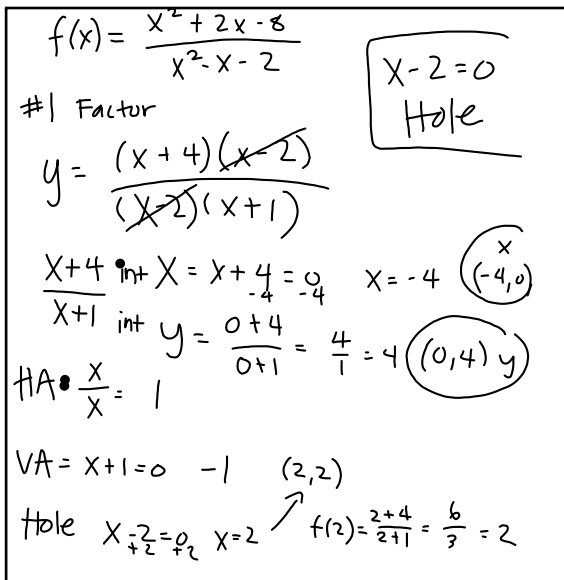 f(x) = (x² + 2x - 8)/(x² - x - 2)
x - 2 = 0
Hole
#1 Factor
y = (x + 4)(x - 2)/(x - 2)(x + 1)
(x+4)/(x+1) int x = x + 4 = 0 x = -4 x (-4,0)
-4 -4
int y = (0+4)/(0+1) = 4/1 = 4 (0,4) y
HA: x/x = 1
VA = x+1=0 -1 (2,2)
Hole x-2=0 x=2 f(2)=(2+4)/(2+1) = 6/3 = 2
+2 +2